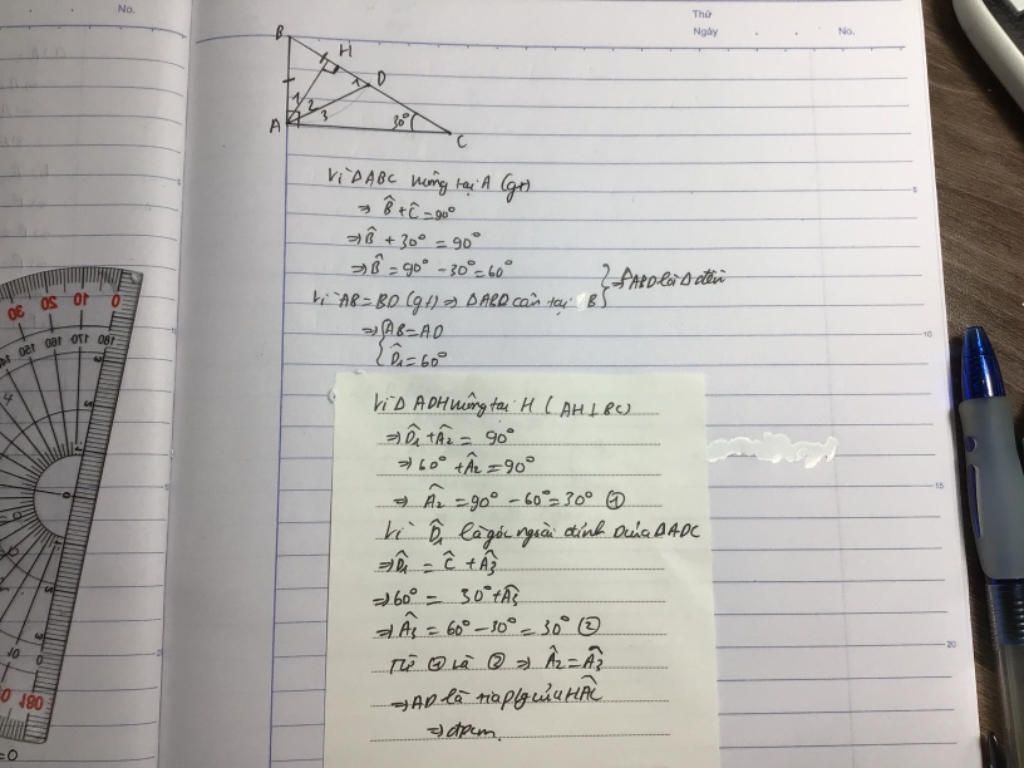 No.
Thứ
Ngày
No.
B
H
1
D
1
2
3
A
30°
C
Vì ΔABC vuông tại A (gt)
⇒ B̂ + Ĉ = 90°
⇒ B̂ + 30° = 90°
⇒ B̂ = 90° - 30° = 60°
Vì AB = BD (gt) ⇒ ΔABD cân tại B
} ⇒ ABD là Δ đều
⇒ { AB = AD
{ D̂₁ = 60°
Vì Δ ADH vuông tại H ( AH ⊥ BC)
⇒ D̂₁ + Â₂ = 90°
⇒ 60° + Â₂ = 90°
⇒ Â₂ = 90° - 60° = 30° ①
Vì D̂₁ là góc ngoài đỉnh D của ΔADC
⇒ D̂₁ = Ĉ + Â₃
⇒ 60° = 30° + Â₃
⇒ Â₃ = 60° - 30° = 30° ②
Từ ① và ② ⇒ Â₂ = Â₃
⇒ AD là tia p/g của HÂC
⇒ đpcm.
5
10
15
20
0 10 20 30
180 170 160 150
180
=0